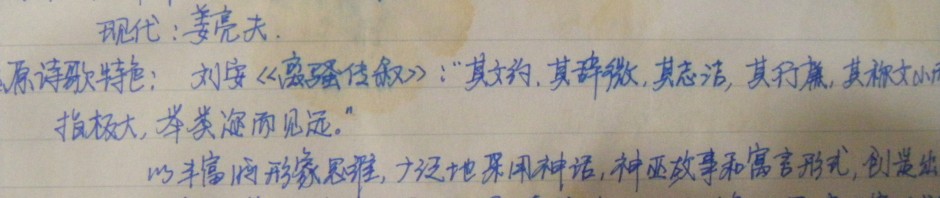 现代：姜亮夫.
原诗歌特色： 刘安《离骚传叙》："其文约，其辞微，其志洁，其行廉，其称文小而
指极大，举类迩而见远。"
以丰富的形象思维，广泛地采用神话，神巫故事和寓言形式，创造出